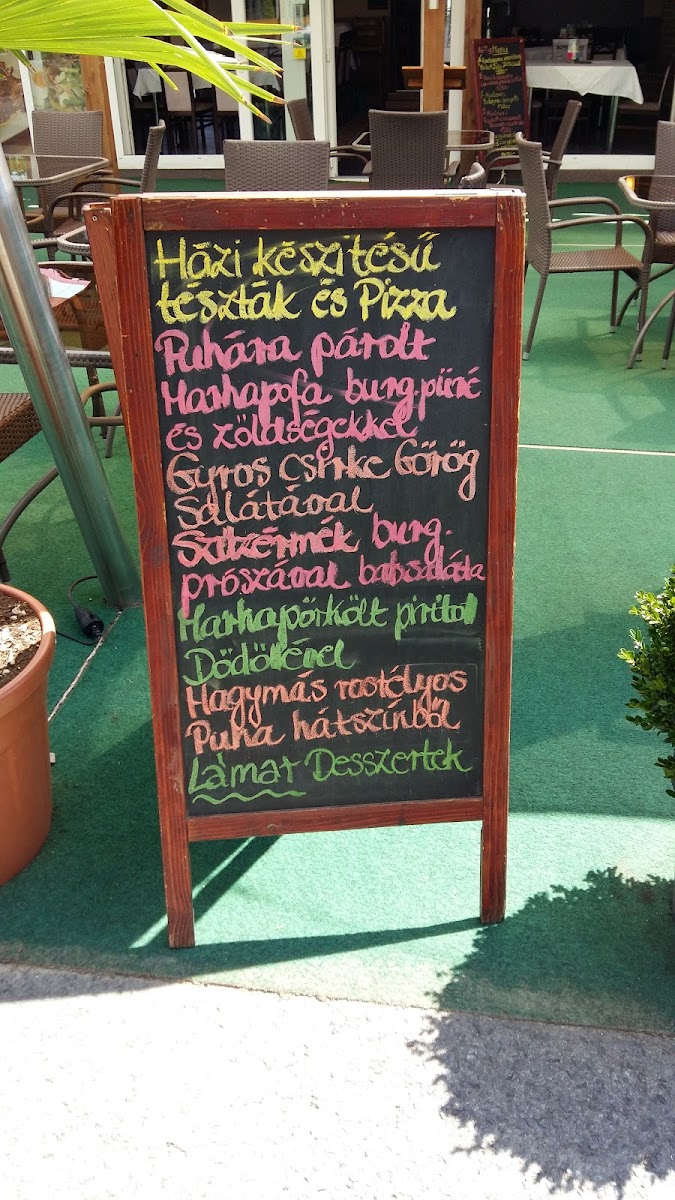 Házi készítésű
tészták és Pizza
Puhára párolt
Marhapofa burg.püré
és zöldségekkel
Gyros csirke Görög
Salátával
Szűzérmék burg.
prószával babsaláta
Marhapörkölt pirított
Dödöllével
Hagymás rostélyos
Puha hátszínből
Lamar Desszertek
Menü